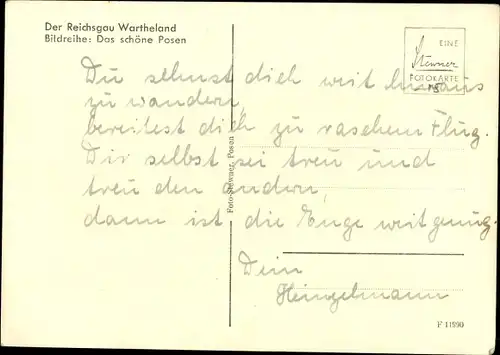 Der Reichsgau Wartheland
Bildreihe: Das schöne Posen
EINE
Stewner
FOTOKARTE
Du sehnst dich weit hinaus
zu wandern,
bereitest dich zu raschem Flug.
Dir selbst sei treu und
treu den andern,
dann ist die Enge weit genug.
Dein
Heinzelmann
Foto-Stewner, Posen
F 11990